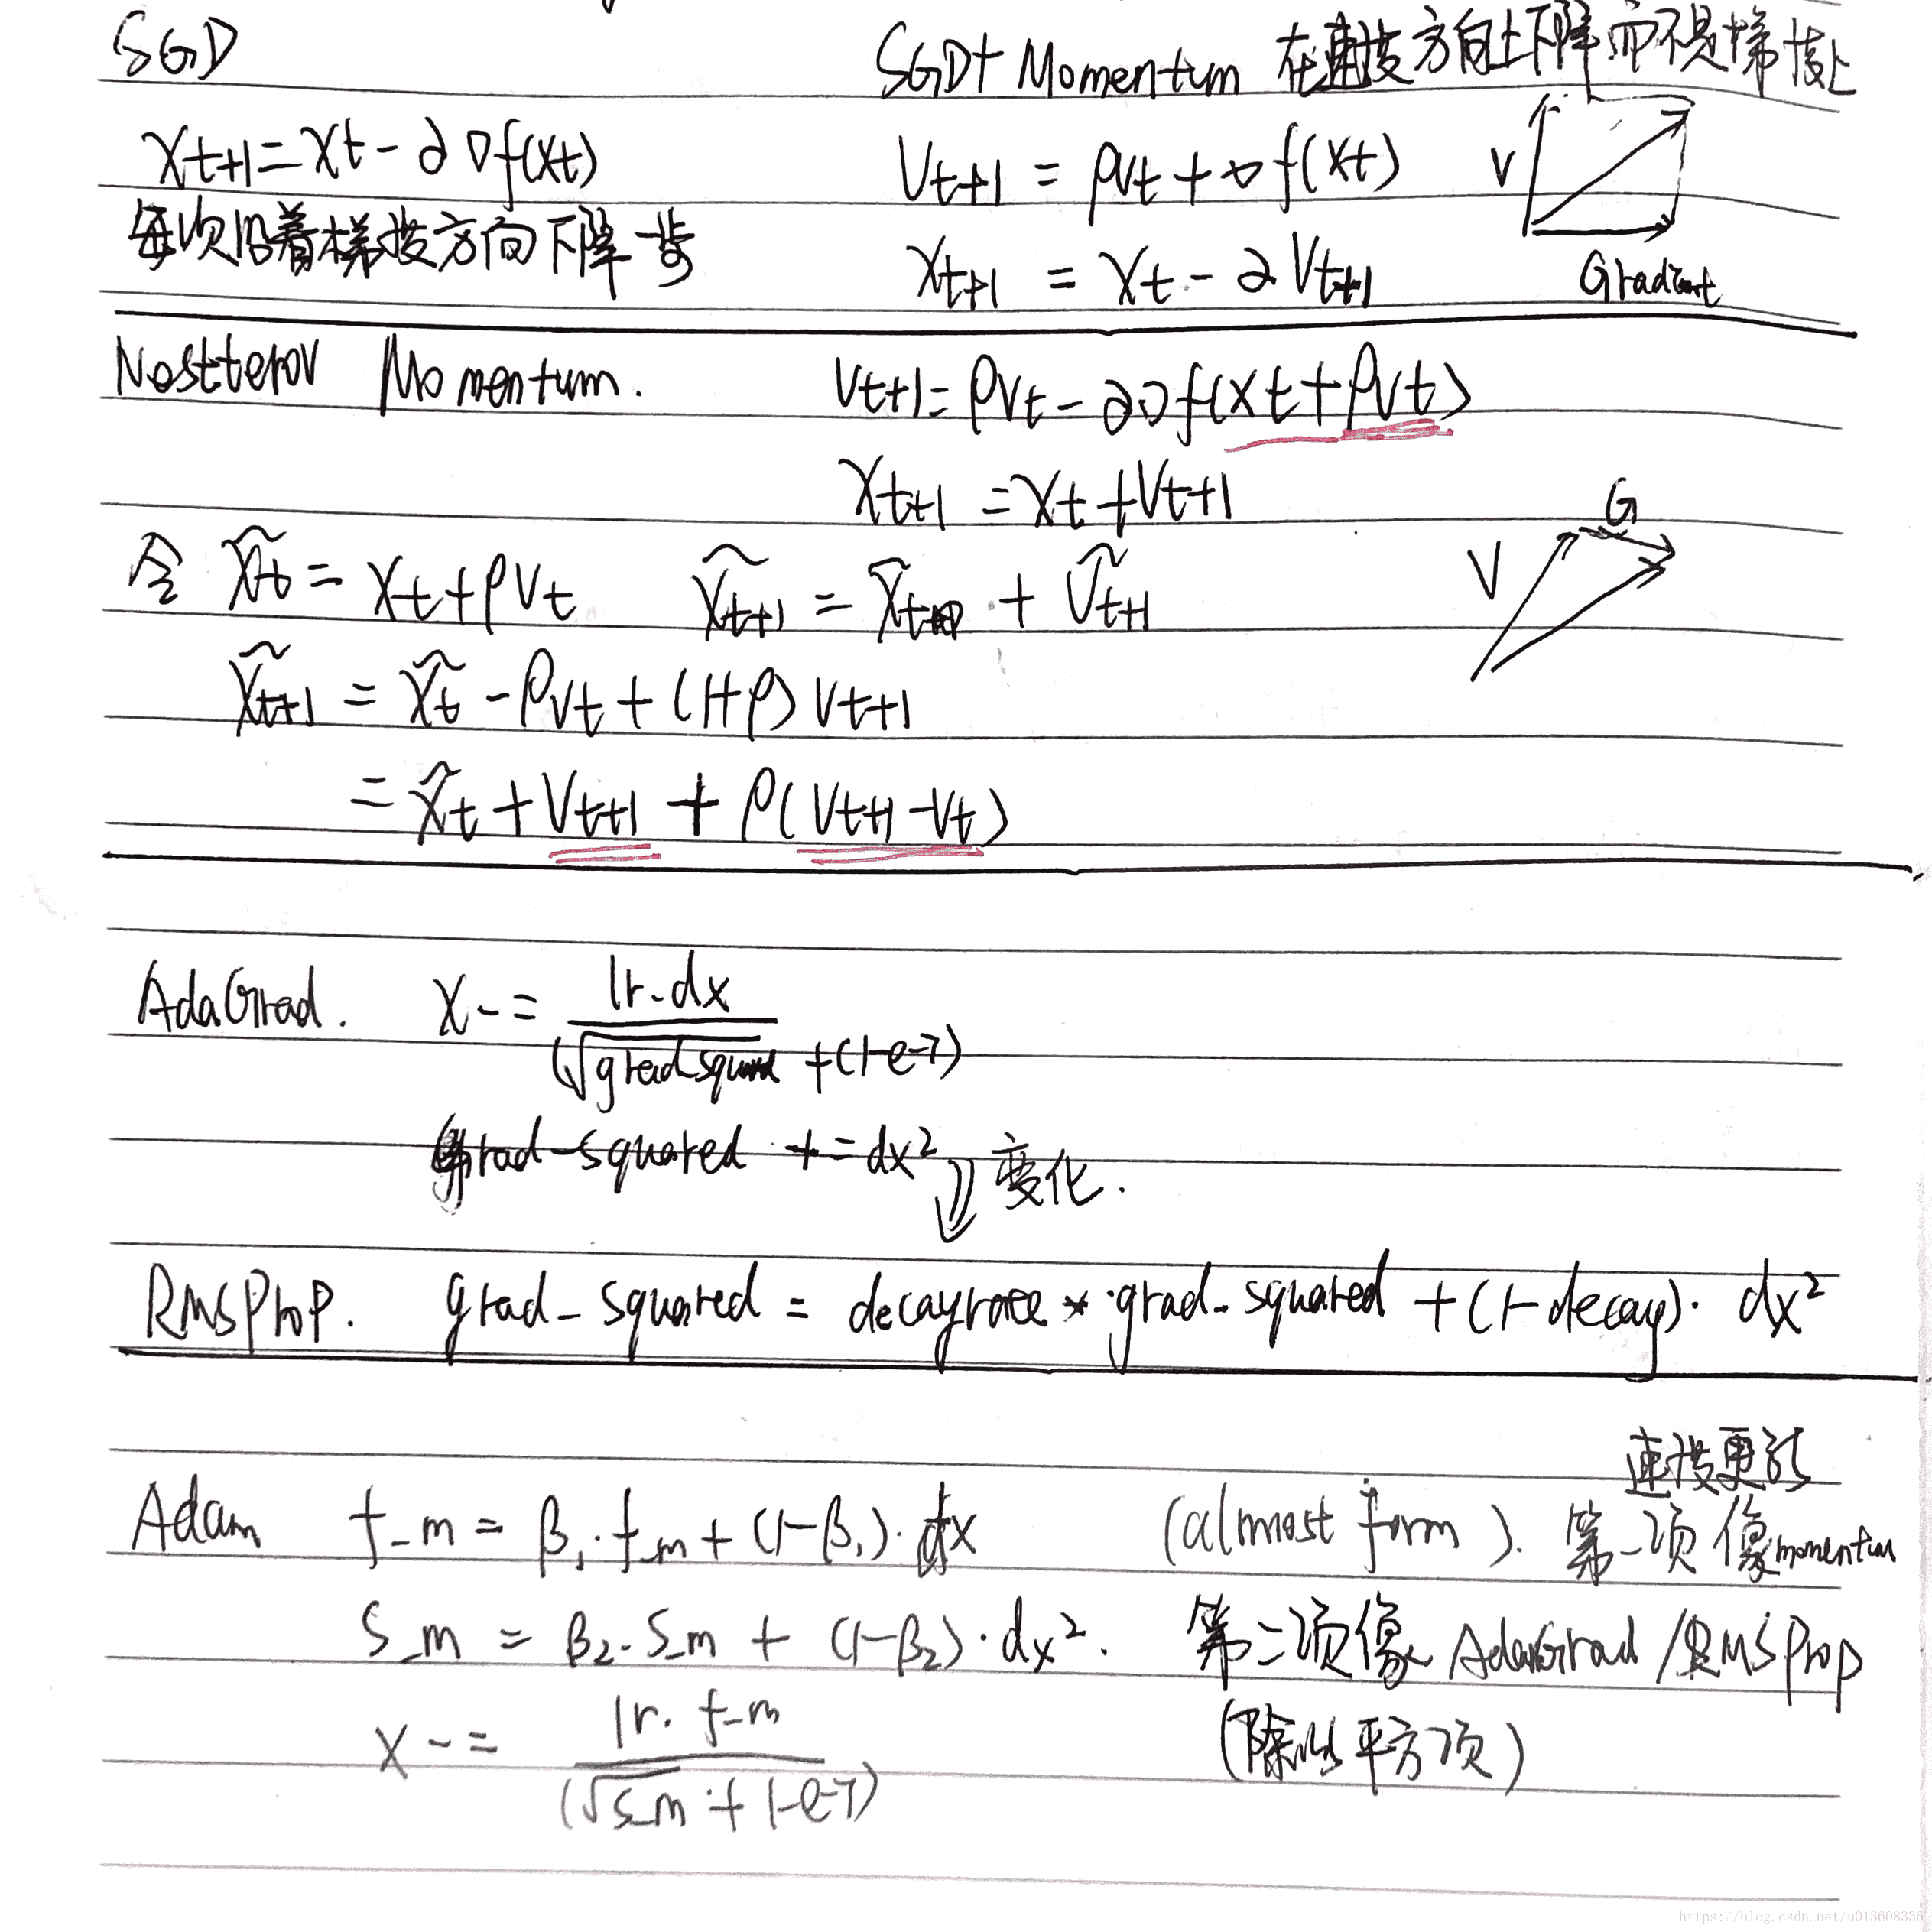 SGD
SGD+ Momentum 在速度方向上下降而不是梯度上
Xt+1=Xt-α∇f(Xt)
Vt+1 = ρVt+∇f(Xt)
V
每次沿着梯度方向下降一步
Xt+1 = Xt-αVt+1
Gradient
Nestterov Momentum.
Vt+1=ρVt-α∇f(Xt+ρVt)
Xt+1 =Xt+Vt+1
G
V
令 X̃t = Xt+ρVt X̃t+1 = + Ṽt+1
X̃t+1 = X̃t -ρVt+(1+ρ)Vt+1
= X̃t+Vt+1 + ρ(Vt+1-Vt)
AdaGrad. X-= lr-dx
(√grad squared +(1-e-7)
grad-squared += dx² 变化.
RMSProp. grad_squared = decayrate*·grad_squared +(1-decay)· dx²
速度更新
Adam f_m= β₁·f_m+(1-β₁)·dx (almost form). 第一项像momentum
S_m = β₂·S_m + (1-β₂)·dx². 第二项像 AdaGrad/RMSProp
X-= lr. f_m (除以平方项)
(√S_m + 1-e-7)
https://blog.csdn.net/u013608336